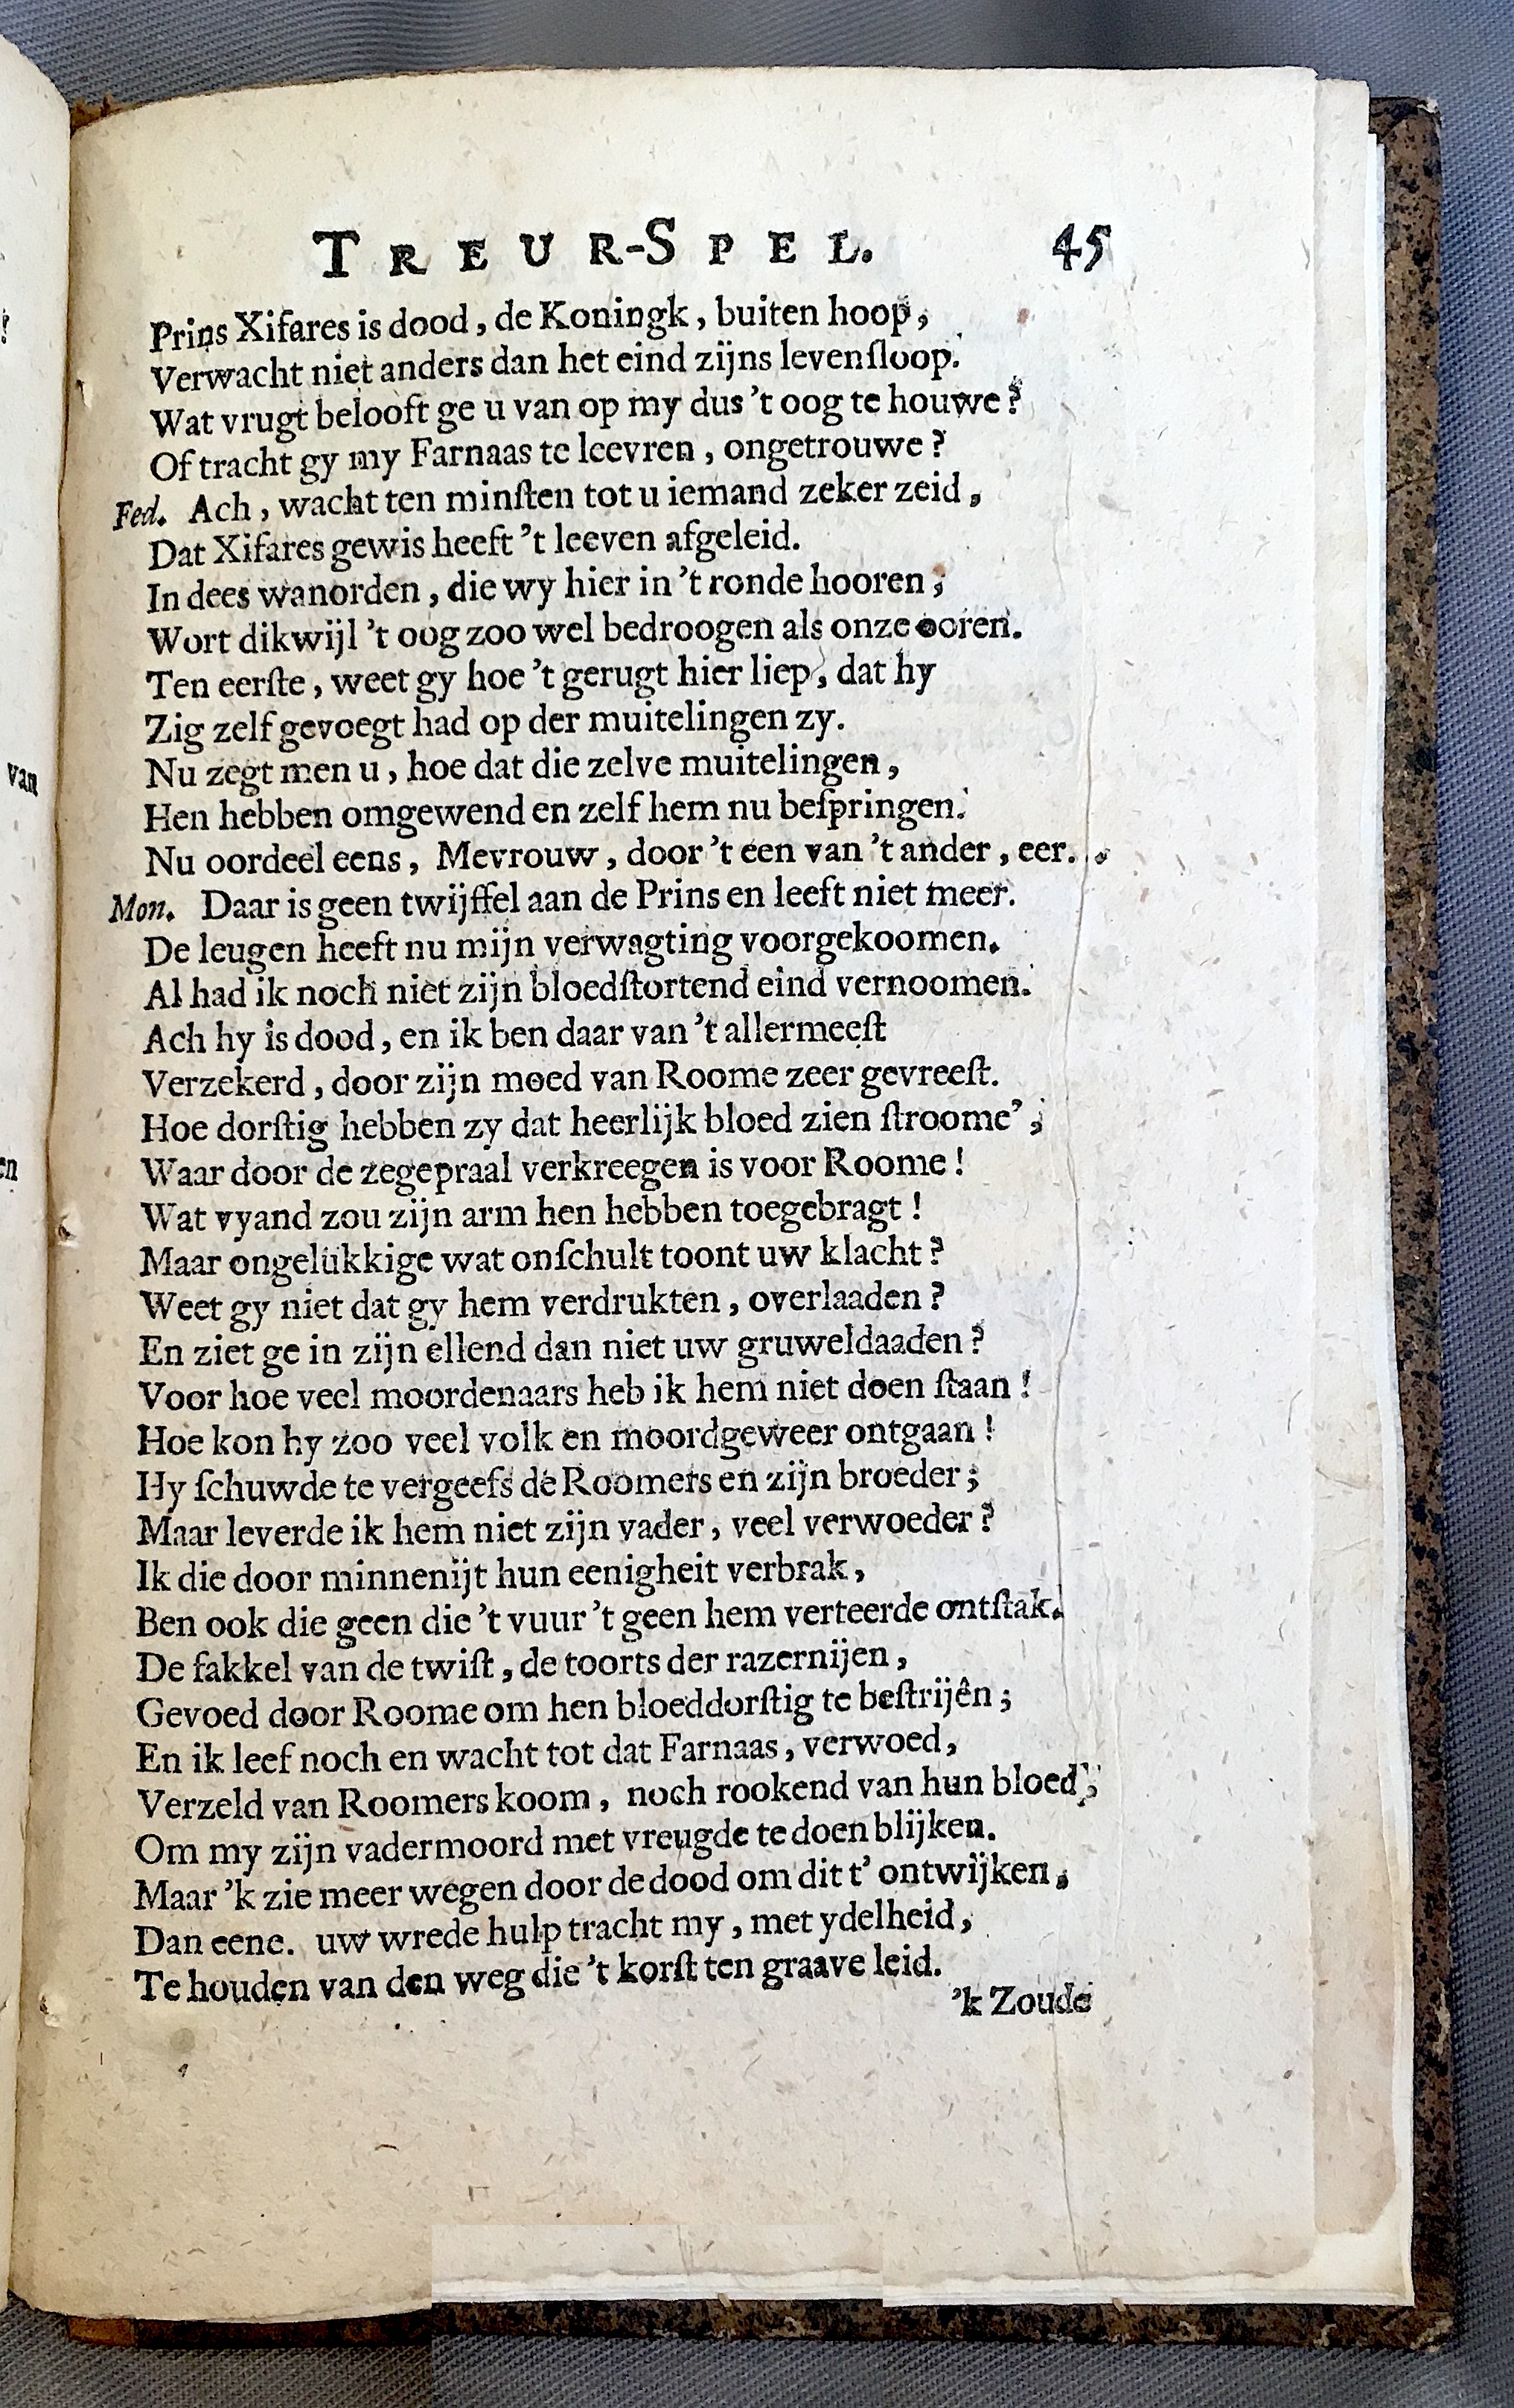 TREUR-SPEL. 45
Prins Xifares is dood, de Koningk, buiten hoop,
Verwacht niet anders dan het eind zijns levenſloop.
Wat vrugt belooft ge u van op my dus 't oog te houwe?
Of tracht gy my Farnaas te leevren, ongetrouwe?
Fed. Ach, wacht ten minſten tot u iemand zeker zeid,
Dat Xifares gewis heeft 't leeven afgeleid.
In dees wanorden, die wy hier in 't ronde hooren,
Wort dikwijl 't oog zoo wel bedroogen als onze ooren.
Ten eerſte, weet gy hoe 't gerugt hier liep, dat hy
Zig zelf gevoegt had op der muitelingen zy.
Nu zegt men u, hoe dat die zelve muitelingen,
Hen hebben omgewend en zelf hem nu beſpringen.
Nu oordeel eens, Mevrouw, door 't een van 't ander, eer..
Mon. Daar is geen twijffel aan de Prins en leeft niet meer.
De leugen heeft nu mijn verwagting voorgekoomen.
Al had ik noch niet zijn bloedſtortend eind vernoomen.
Ach hy is dood, en ik ben daar van 't allermeeſt
Verzekerd, door zijn moed van Roome zeer gevreeſt.
Hoe dorſtig hebben zy dat heerlijk bloed zien ſtroome',
Waar door de zegepraal verkreegen is voor Roome!
Wat vyand zou zijn arm hen hebben toegebragt!
Maar ongelukkige wat onſchult toont uw klacht?
Weet gy niet dat gy hem verdrukten, overlaaden?
En ziet ge in zijn ellend dan niet uw gruweldaaden?
Voor hoe veel moordenaars heb ik hem niet doen ſtaan!
Hoe kon hy zoo veel volk en moordgeweer ontgaan!
Hy ſchuwde te vergeefs de Roomers en zijn broeder;
Maar leverde ik hem niet zijn vader, veel verwoeder?
Ik die door minnenijt hun eenigheit verbrak,
Ben ook die geen die 't vuur 't geen hem verteerde ontſtak.
De fakkel van de twiſt, de toorts der razernijen,
Gevoed door Roome om hen bloeddorſtig te beſtrijên;
En ik leef noch en wacht tot dat Farnaas, verwoed,
Verzeld van Roomers koom, noch rookend van hun bloed,
Om my zijn vadermoord met vreugde te doen blijken.
Maar 'k zie meer wegen door de dood om dit t' ontwijken,
Dan eene. uw wrede hulp tracht my, met ydelheid,
Te houden van den weg die 't korſt ten graave leid.
'k Zoude
van
en